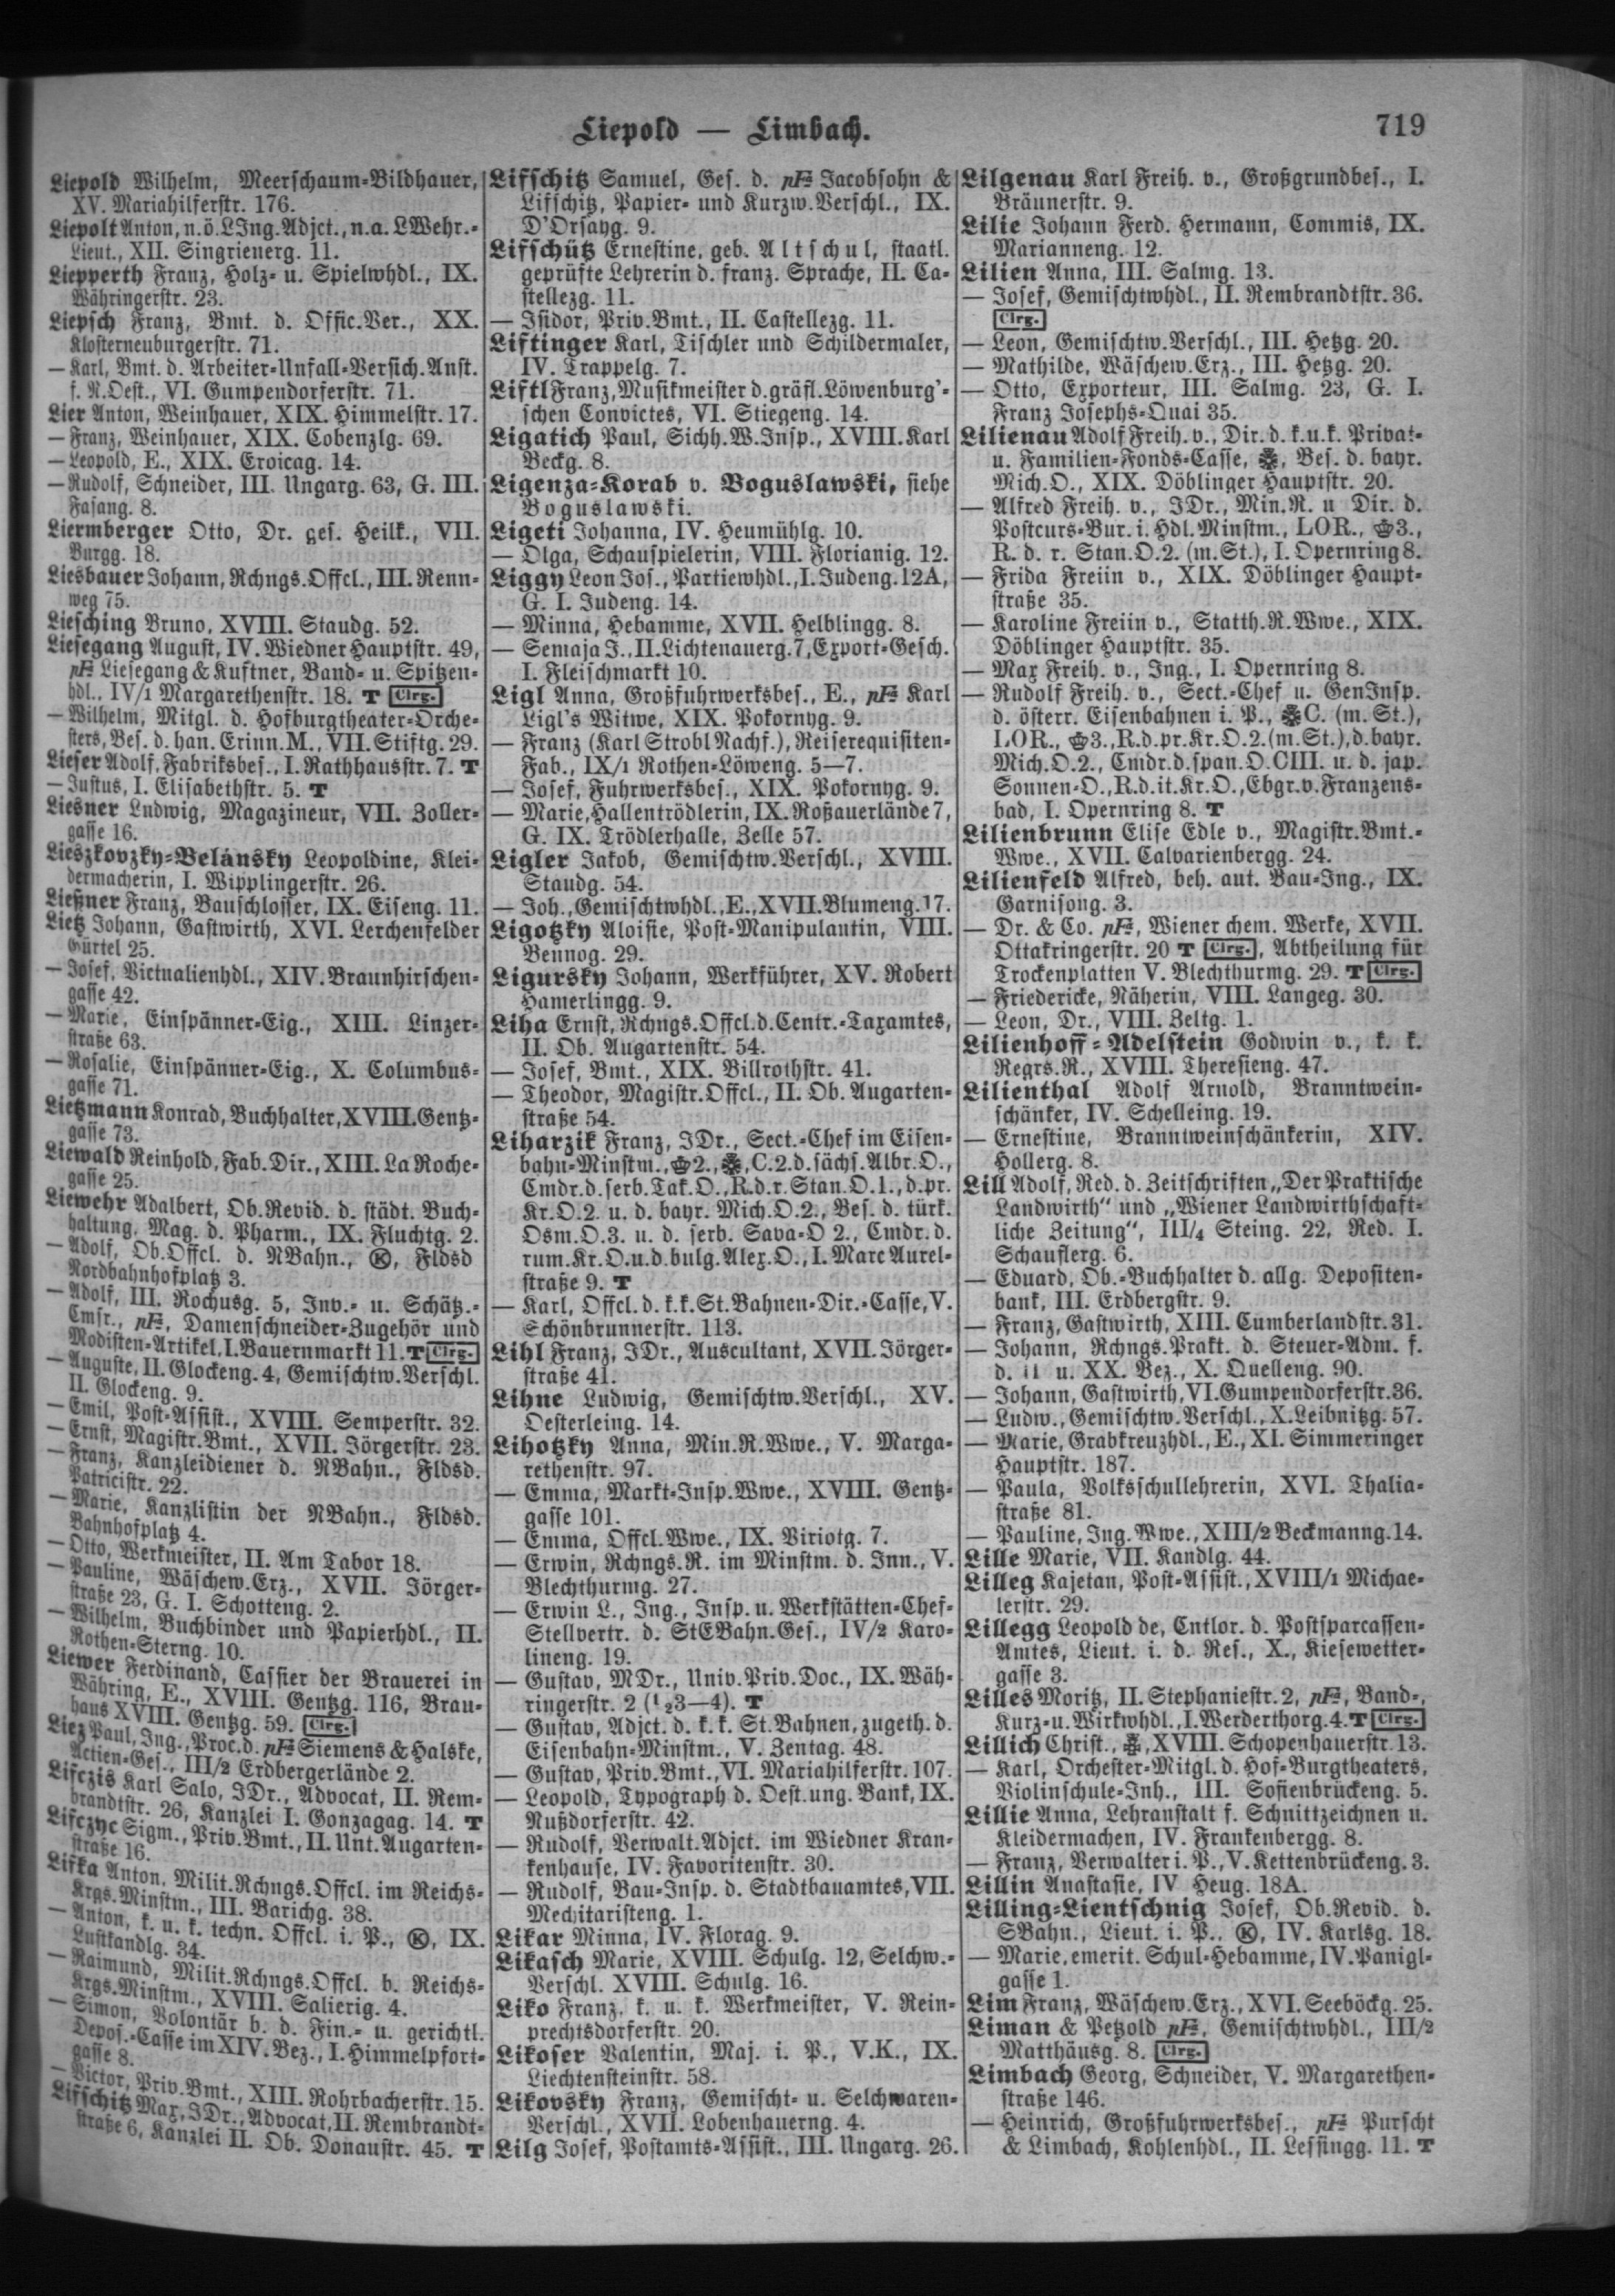 Liepold — Limbach.
719
Liepold Wilhelm, Meerschaum-Bildhauer,
XV. Mariahilferstr. 176.
Liepolt Anton, n.ö.LIng.Adjct., n.a. LWehr.-
Lieut., XII. Singrienerg. 11.
Liepperth Franz, Holz- u. Spielwhdl., IX.
Währingerstr. 23.
Liepsch Franz, Bmt. d. Offic.Ver., XX.
Klosterneuburgerstr. 71.
— Karl, Bmt. d. Arbeiter-Unfall-Versich.Anst.
f. N.Oest., VI. Gumpendorferstr. 71.
Lier Anton, Weinhauer, XIX. Himmelstr. 17.
— Franz, Weinhauer, XIX. Cobenzlg. 69.
— Leopold, E., XIX. Eroicag. 14.
— Rudolf, Schneider, III. Ungarg. 63, G. III.
Fasang. 8.
Liermberger Otto, Dr. ges. Heilk., VII.
Burgg. 18.
Liesbauer Johann, Rchngs.Offcl., III. Renn-
weg 75.
Liesching Bruno, XVIII. Staudg. 52.
Liesegang August, IV. Wiedner Hauptstr. 49,
pFa Liesegang & Kuftner, Band- u. Spitzen-
hdl., IV/1 Margarethenstr. 18. T Clrg.
— Wilhelm, Mitgl. d. Hofburgtheater-Orche-
sters, Bes. d. han. Erinn.M., VII. Stiftg. 29.
Lieser Adolf, Fabriksbes., I. Rathhausstr. 7. T
— Justus, I. Elisabethstr. 5. T
Liesner Ludwig, Magazineur, VII. Zoller-
gasse 16.
Lieszkovzky-Belánsky Leopoldine, Klei-
dermacherin, I. Wipplingerstr. 26.
Ließner Franz, Bauschlosser, IX. Eiseng. 11.
Lietz Johann, Gastwirth, XVI. Lerchenfelder
Gürtel 25.
— Josef, Victualienhdl., XIV. Braunhirschen-
gasse 42.
— Marie, Einspänner-Eig., XIII. Linzer-
straße 63.
— Rosalie, Einspänner-Eig., X. Columbus-
gasse 71.
Lietzmann Konrad, Buchhalter, XVIII. Gentz-
gasse 73.
Liewald Reinhold, Fab.Dir., XIII. La Roche-
gasse 25.
Liewehr Adalbert, Ob.Revid. d. städt. Buch-
haltung, Mag. d. Pharm., IX. Fluchtg. 2.
— Adolf, Ob.Offcl. d. NBahn., Ⓚ, Fldsd
Nordbahnhofplatz 3.
— Adolf, III. Rochusg. 5, Inv.- u. Schätz.-
Cmsr., pFa, Damenschneider-Zugehör und
Modisten-Artikel, I. Bauernmarkt 11. T Clrg.
— Auguste, II. Glockeng. 4, Gemischtw.Verschl.
II. Glockeng. 9.
— Emil, Post-Assist., XVIII. Semperstr. 32.
— Ernst, Magistr.Bmt., XVII. Jörgerstr. 23.
— Franz, Kanzleidiener d. NBahn., Fldsd.
Patricistr. 22.
— Marie, Kanzlistin der NBahn., Fldsd.
Bahnhofplatz 4.
— Otto, Werkmeister, II. Am Tabor 18.
— Pauline, Wäschew.Erz., XVII. Jörger-
straße 23, G. I. Schotteng. 2.
— Wilhelm, Buchbinder und Papierhdl., II.
Rothen-Sterng. 10.
Liewer Ferdinand, Cassier der Brauerei in
Währing, E., XVIII. Gentzg. 116, Brau-
haus XVIII. Gentzg. 59. Clrg.
Liez Paul, Ing., Proc. d. pFa Siemens & Halske,
Actien-Ges., III/2 Erdbergerlände 2.
Lifczis Karl Salo, JDr., Advocat, II. Rem-
brandtstr. 26, Kanzlei I. Gonzagag. 14. T
Lifczyc Sigm., Priv.Bmt., II. Unt. Augarten-
straße 16.
Lifka Anton, Milit.Rchngs.Offcl. im Reichs-
Krgs.Minstm., III. Barichg. 38.
— Anton, k. u. k. techn. Offcl. i. P., Ⓚ, IX.
Lustkandlg. 34.
— Raimund, Milit.Rchngs.Offcl. b. Reichs-
Krgs.Minstm., XVIII. Salierig. 4.
— Simon, Volontär b. d. Fin.- u. gerichtl.
Depos.-Casse im XIV. Bez., I. Himmelpfort-
gasse 8.
— Victor, Priv.Bmt., XIII. Rohrbacherstr. 15.
Lifschitz Max, JDr., Advocat, II. Rembrandt-
straße 6, Kanzlei II. Ob. Donaustr. 45. T
Lifschitz Samuel, Ges. d. pFa Jacobsohn &
Lifschitz, Papier- und Kurzw.Verschl., IX.
D'Orsayg. 9.
Lifschütz Ernestine, geb. Altschul, staatl.
geprüfte Lehrerin d. franz. Sprache, II. Ca-
stellezg. 11.
— Isidor, Priv.Bmt., II. Castellezg. 11.
Liftinger Karl, Tischler und Schildermaler,
IV. Trappelg. 7.
Liftl Franz, Musikmeister d. gräfl. Löwenburg'-
schen Convictes, VI. Stiegeng. 14.
Ligatich Paul, Sichh.W.Insp., XVIII. Karl
Beckg. 8.
Ligenza-Korab v. Boguslawski, siehe
Boguslawski.
Ligeti Johanna, IV. Heumühlg. 10.
— Olga, Schauspielerin, VIII. Florianig. 12.
Liggy Leon Jos., Partiewhdl., I. Judeng. 12A,
G. I. Judeng. 14.
— Minna, Hebamme, XVII. Helblingg. 8.
— Semaja J., II. Lichtenauerg. 7, Export-Gesch.
I. Fleischmarkt 10.
Ligl Anna, Großfuhrwerksbes., E., pFa Karl
Ligl's Witwe, XIX. Pokornyg. 9.
— Franz (Karl Strobl Nachf.), Reiserequisiten-
Fab., IX/1 Rothen-Löweng. 5—7.
— Josef, Fuhrwerksbes., XIX. Pokornyg. 9.
— Marie, Hallentrödlerin, IX. Roßauerlände 7,
G. IX. Trödlerhalle, Zelle 57.
Ligler Jakob, Gemischtw.Verschl., XVIII.
Staudg. 54.
— Joh., Gemischtwhdl., E., XVII. Blumeng. 17.
Ligotzky Aloisie, Post-Manipulantin, VIII.
Bennog. 29.
Ligursky Johann, Werkführer, XV. Robert
Hamerlingg. 9.
Liha Ernst, Rchngs.Offcl. d. Centr.-Taxamtes,
II. Ob. Augartenstr. 54.
— Josef, Bmt., XIX. Billrothstr. 41.
— Theodor, Magistr.Offcl., II. Ob. Augarten-
straße 54.
Liharzik Franz, JDr., Sect.-Chef im Eisen-
bahn-Minstm., 2., C. 2. d. sächs. Albr.O.,
Cmdr. d. serb. Tak.O., R. d. r. Stan.O. 1., d. pr.
Kr.O. 2. u. d. bayr. Mich.O. 2., Bes. d. türk.
Osm.O. 3. u. d. serb. Sava-O 2., Cmdr. d.
rum. Kr.O. u. d. bulg. Alex.O., I. Marc Aurel-
straße 9. T
— Karl, Offcl. d. k. k. St.Bahnen-Dir.-Casse, V.
Schönbrunnerstr. 113.
Lihl Franz, JDr., Auscultant, XVII. Jörger-
straße 41.
Lihne Ludwig, Gemischtw.Verschl., XV.
Oesterleing. 14.
Lihotzky Anna, Min.R.Wwe., V. Marga-
rethenstr. 97.
— Emma, Markt-Insp.Wwe., XVIII. Gentz-
gasse 101.
— Emma, Offcl.Wwe., IX. Viriotg. 7.
— Erwin, Rchngs.R. im Minstm. d. Inn., V.
Blechthurmg. 27.
— Erwin L., Ing., Insp. u. Werkstätten-Chef-
Stellvertr. d. StEBahn.Ges., IV/2 Karo-
lineng. 19.
— Gustav, MDr., Univ.Priv.Doc., IX. Wäh-
ringerstr. 2 (½3—4). T
— Gustav, Adjct. d. k. k. St.Bahnen, zugeth. d.
Eisenbahn-Minstm., V. Zentag. 48.
— Gustav, Priv.Bmt., VI. Mariahilferstr. 107.
— Leopold, Typograph d. Oest.ung. Bank, IX.
Nußdorferstr. 42.
— Rudolf, Verwalt.Adjct. im Wiedner Kran-
kenhause, IV. Favoritenstr. 30.
— Rudolf, Bau-Insp. d. Stadtbauamtes, VII.
Mechitaristeng. 1.
Likar Minna, IV. Florag. 9.
Likasch Marie, XVIII. Schulg. 12, Selchw.-
Verschl. XVIII. Schulg. 16.
Liko Franz, k. u. k. Werkmeister, V. Rein-
prechtsdorferstr. 20.
Likoser Valentin, Maj. i. P., V.K., IX.
Liechtensteinstr. 58.
Likovsky Franz, Gemischt- u. Selchwaren-
Verschl., XVII. Lobenhauerng. 4.
Lilg Josef, Postamts-Assist., III. Ungarg. 26.
Lilgenau Karl Freih. v., Großgrundbes., I.
Bräunerstr. 9.
Lilie Johann Ferd. Hermann, Commis, IX.
Marianneng. 12.
Lilien Anna, III. Salmg. 13.
— Josef, Gemischtwhdl., II. Rembrandtstr. 36.
Clrg.
— Leon, Gemischtw.Verschl., III. Hetzg. 20.
— Mathilde, Wäschew.Erz., III. Hetzg. 20.
— Otto, Exporteur, III. Salmg. 23, G. I.
Franz Josephs-Quai 35.
Lilienau Adolf Freih. v., Dir. d. k. u. k. Privat-
u. Familien-Fonds-Casse, Bes. d. bayr.
Mich.O., XIX. Döblinger Hauptstr. 20.
— Alfred Freih. v., JDr., Min.R. u Dir. d.
Postcurs-Bur. i. Hdl.Minstm., LOR., 3.,
R. d. r. Stan.O. 2. (m.St.), I. Opernring 8.
— Frida Freiin v., XIX. Döblinger Haupt-
straße 35.
— Karoline Freiin v., Statth.R.Wwe., XIX.
Döblinger Hauptstr. 35.
— Max Freih. v., Ing., I. Opernring 8.
— Rudolf Freih. v., Sect.-Chef u. GenInsp.
d. österr. Eisenbahnen i. P., C. (m. St.),
LOR., 3., R. d. pr. Kr.O. 2. (m. St.), d. bayr.
Mich.O. 2., Cmdr. d. span. O. CIII. u. d. jap.
Sonnen-O., R. d. it. Kr.O., Ebgr. v. Franzens-
bad, I. Opernring 8. T
Lilienbrunn Elise Edle v., Magistr.Bmt.-
Wwe., XVII. Calvarienbergg. 24.
Lilienfeld Alfred, beh. aut. Bau-Ing., IX.
Garnisong. 3.
— Dr. & Co. pFa, Wiener chem. Werke, XVII.
Ottakringerstr. 20 T Clrg., Abtheilung für
Trockenplatten V. Blechthurmg. 29. T Clrg.
— Friedericke, Näherin, VIII. Langeg. 30.
— Leon, Dr., VIII. Zeltg. 1.
Lilienhoff-Adelstein Godwin v., k. k.
Regrs.R., XVIII. Theresieng. 47.
Lilienthal Adolf Arnold, Branntwein-
schänker, IV. Schelleing. 19.
— Ernestine, Branntweinschänkerin, XIV.
Hollerg. 8.
Lill Adolf, Red. d. Zeitschriften „Der Praktische
Landwirth" und „Wiener Landwirthschaft-
liche Zeitung", III/4 Steing. 22, Red. I.
Schauflerg. 6.
— Eduard, Ob.-Buchhalter d. allg. Depositen-
bank, III. Erdbergstr. 9.
— Franz, Gastwirth, XIII. Cumberlandstr. 31.
— Johann, Rchngs.Prakt. d. Steuer-Adm. f.
d. II u. XX. Bez., X. Quelleng. 90.
— Johann, Gastwirth, VI. Gumpendorferstr. 36.
— Ludw., Gemischtw.Verschl., X. Leibnitzg. 57.
— Marie, Grabkreuzhdl., E., XI. Simmeringer
Hauptstr. 187.
— Paula, Volksschullehrerin, XVI. Thalia-
straße 81.
— Pauline, Ing.Wwe., XIII/2 Beckmanng. 14.
Lille Marie, VII. Kandlg. 44.
Lilleg Kajetan, Post-Assist., XVIII/1 Michae-
lerstr. 29.
Lillegg Leopold de, Cntlor. d. Postsparcassen-
Amtes, Lieut. i. d. Res., X., Kiesewetter-
gasse 3.
Lilles Moritz, II. Stephaniestr. 2, pFa, Band-,
Kurz- u. Wirkwhdl., I. Werderthorg. 4. T Clrg.
Lillich Christ., XVIII. Schopenhauerstr. 13.
— Karl, Orchester-Mitgl. d. Hof-Burgtheaters,
Violinschule-Inh., III. Sofienbrückeng. 5.
Lillie Anna, Lehranstalt f. Schnittzeichnen u.
Kleidermachen, IV. Frankenbergg. 8.
— Franz, Verwalter i. P., V. Kettenbrückeng. 3.
Lillin Anastasie, IV Heug. 18A.
Lilling-Lientschnig Josef, Ob.Revid. d.
SBahn., Lieut. i. P., Ⓚ, IV. Karlsg. 18.
— Marie, emerit. Schul-Hebamme, IV. Panigl-
gasse 1.
Lim Franz, Wäschew.Erz., XVI. Seeböckg. 25.
Liman & Petzold pFa, Gemischtwhdl., III/2
Matthäusg. 8. Clrg.
Limbach Georg, Schneider, V. Margarethen-
straße 146.
— Heinrich, Großfuhrwerksbes., pFa Purscht
& Limbach, Kohlenhdl., II. Lessingg. 11. T